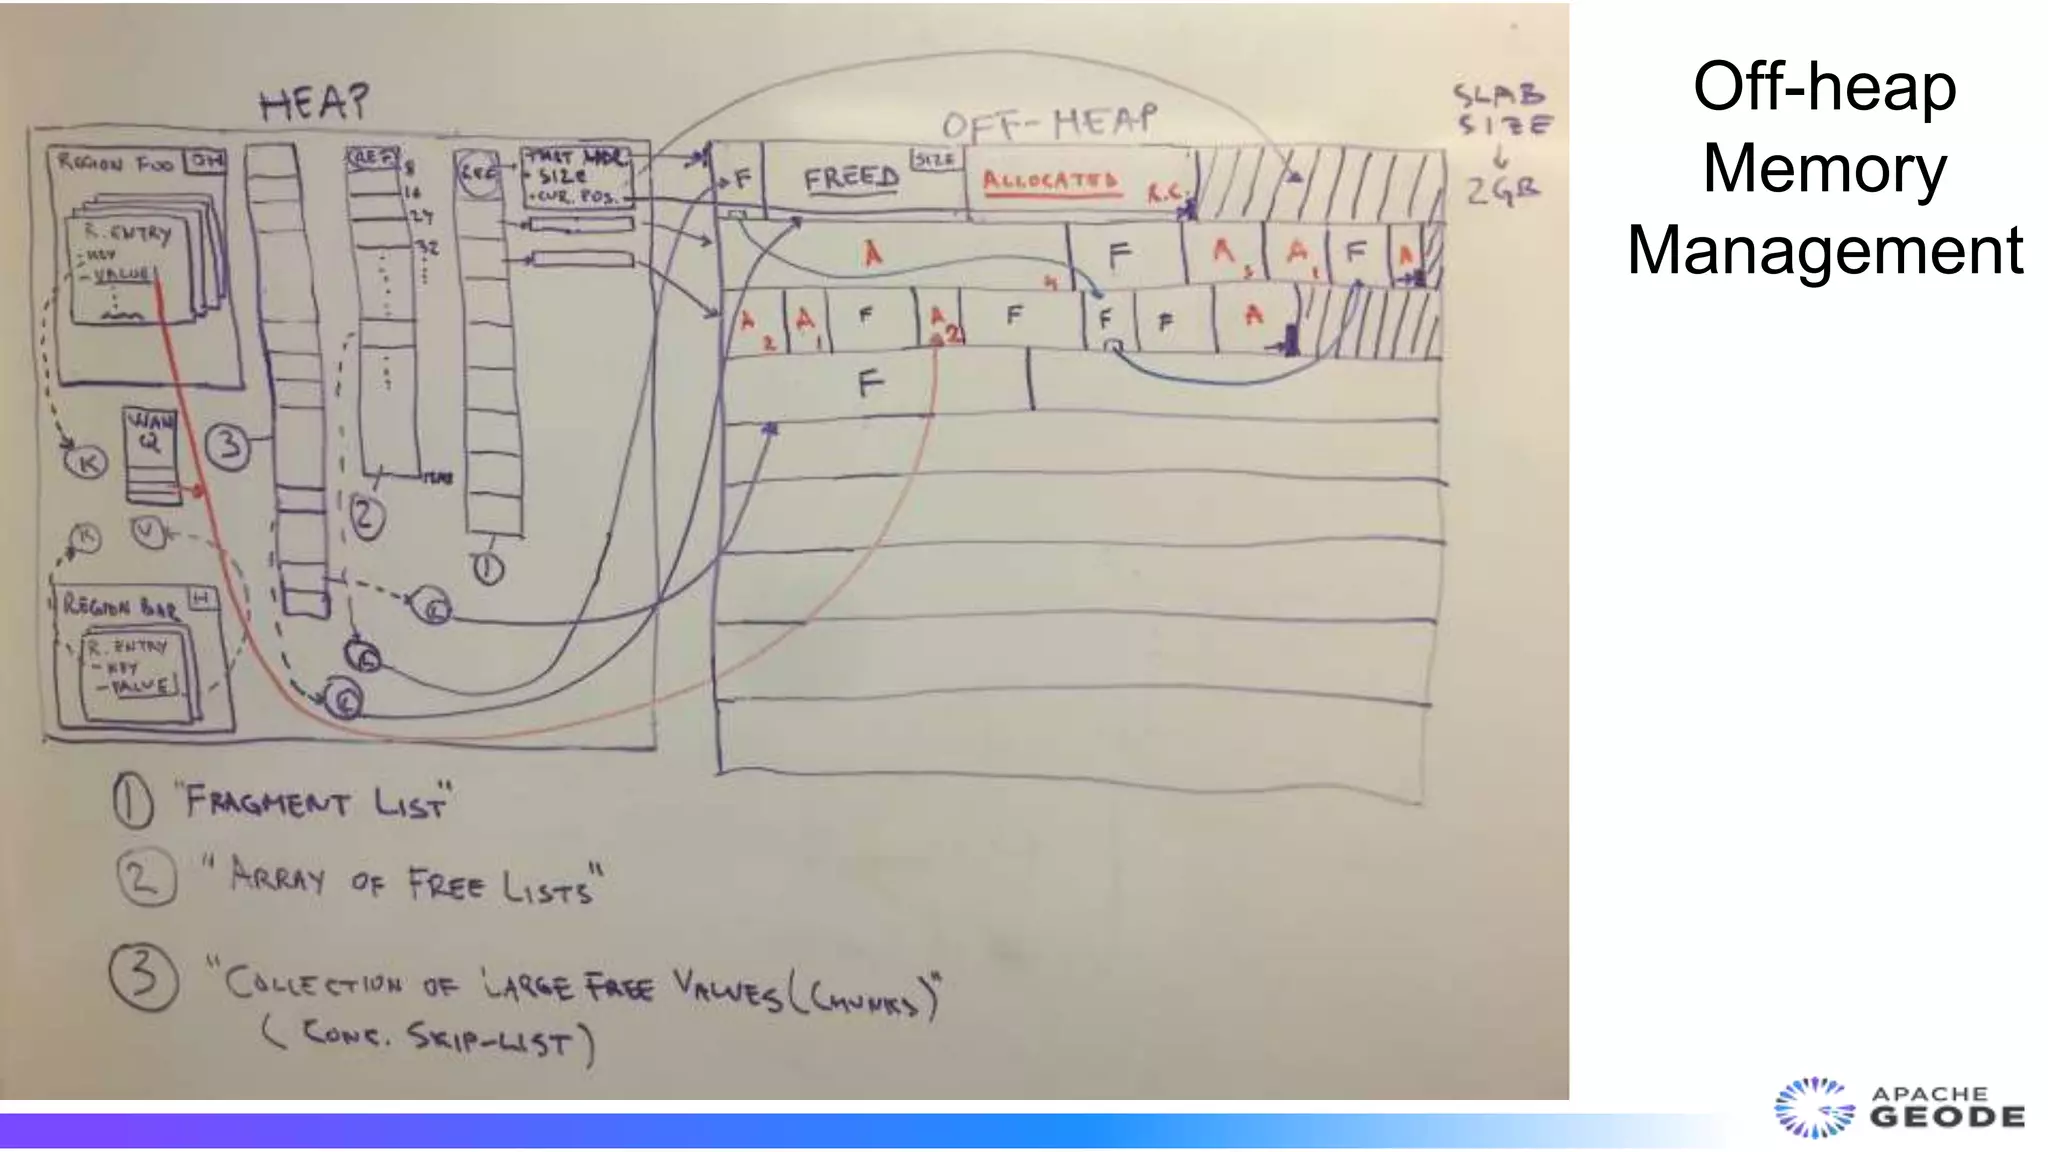 Off-heap
Memory
Management
HEAP
OFF-HEAP
SLAB
SIZE
2GB
REGION FOO
OH
R. ENTRY
- KEY
- VALUE
K
WAN
Q
V
K
REGION BAR
H
R. ENTRY
- KEY
- VALUE
3
REF
8
16
24
32
2
1
• SIZE
• CUR. POS.
F
FREED
SIZE
ALLOCATED
R.C.
A
F
A
A
F
A
A
2
A
1
F
A
2
F
F
F
A
F
1 "FRAGMENT LIST"
2 "ARRAY OF FREE LISTS"
3 "COLLECTION OF LARGE FREE VALUES (CHUNKS)"
(CONC. SKIP-LIST)
APACHE
GEODE